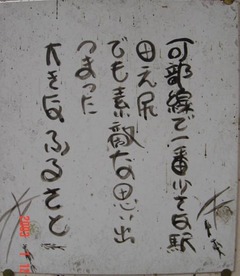 可部線で一番少さな駅
田之尻
でも素敵な思い出
つまった
大きなふるさと